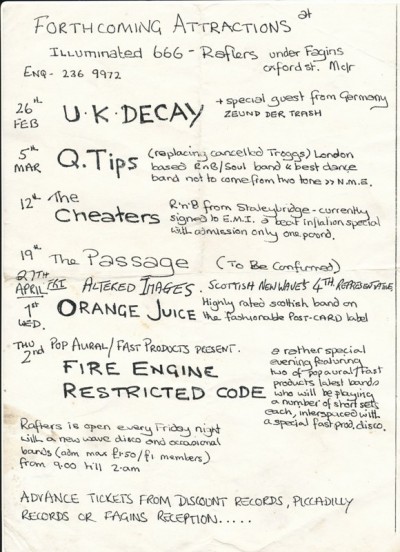 FORTHCOMING ATTRACTIONS at
ILLUMINATED 666 - Rafters under Fagins
oxford st. M/cr
ENQ - 236 9972
26th FEB U·K·DECAY + special guest from Germany
ZEUND DER TRASH
5th MAR Q.Tips (replacing cancelled Troggs) London
based RnB/Soul band "best dance
band not to come from two tone" N.M.E.
12th The Cheaters R'n'B from Staleybridge - currently
signed to E.M.I. a beat inflation special
with admission only one pound.
19th The Passage (To Be Confirmed)
27TH APRIL FRI ALTERED IMAGES. SCOTTISH NEW WAVE'S 4TH REPRESENTATIVE
1st WED. ORANGE JUICE Highly rated scottish band on
the fashionable POST-CARD label
THU 2nd POP AURAL/FAST PRODUCTS PRESENT.
FIRE ENGINE
RESTRICTED CODE
a rather special
evening featuring
two of pop aural/fast
products latest bands
who will be playing
a number of short sets
each, interspaced with
a special fast prod. disco.
Rafters is open every Friday night
with a new wave disco and occasional
bands (adm max £1·50/£1 members)
from 9.00 till 2.am
ADVANCE TICKETS FROM DISCOUNT RECORDS, PICCADILLY
RECORDS OR FAGINS RECEPTION.....